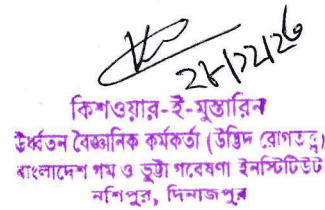 ২৮/১২/২৬
কিশওয়ার-ই-মুস্তারিন
ঊর্ধ্বতন বৈজ্ঞানিক কর্মকর্তা (উদ্ভিদ রোগতত্ত্ব)
বাংলাদেশ গম ও ভুট্টা গবেষণা ইনস্টিটিউট
নশিপুর, দিনাজপুর